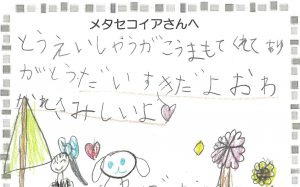 メタセコイアさんへ
とうえいしゃうがこうまもてくれてあり
がとうだいすきだよおわ
かれさみしいよ